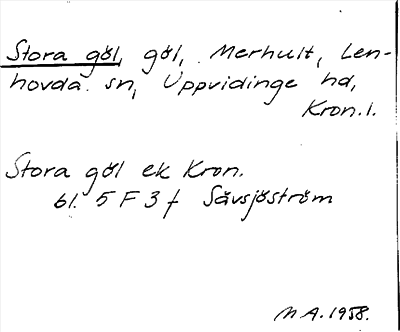 Stora göl, göl, Merhult, Len-
hovda sn, Uppvidinge hd,
Kron.l.
Stora göl ek Kron.
bl. 5 F 3 f Sävsjöström
M A. 1958.